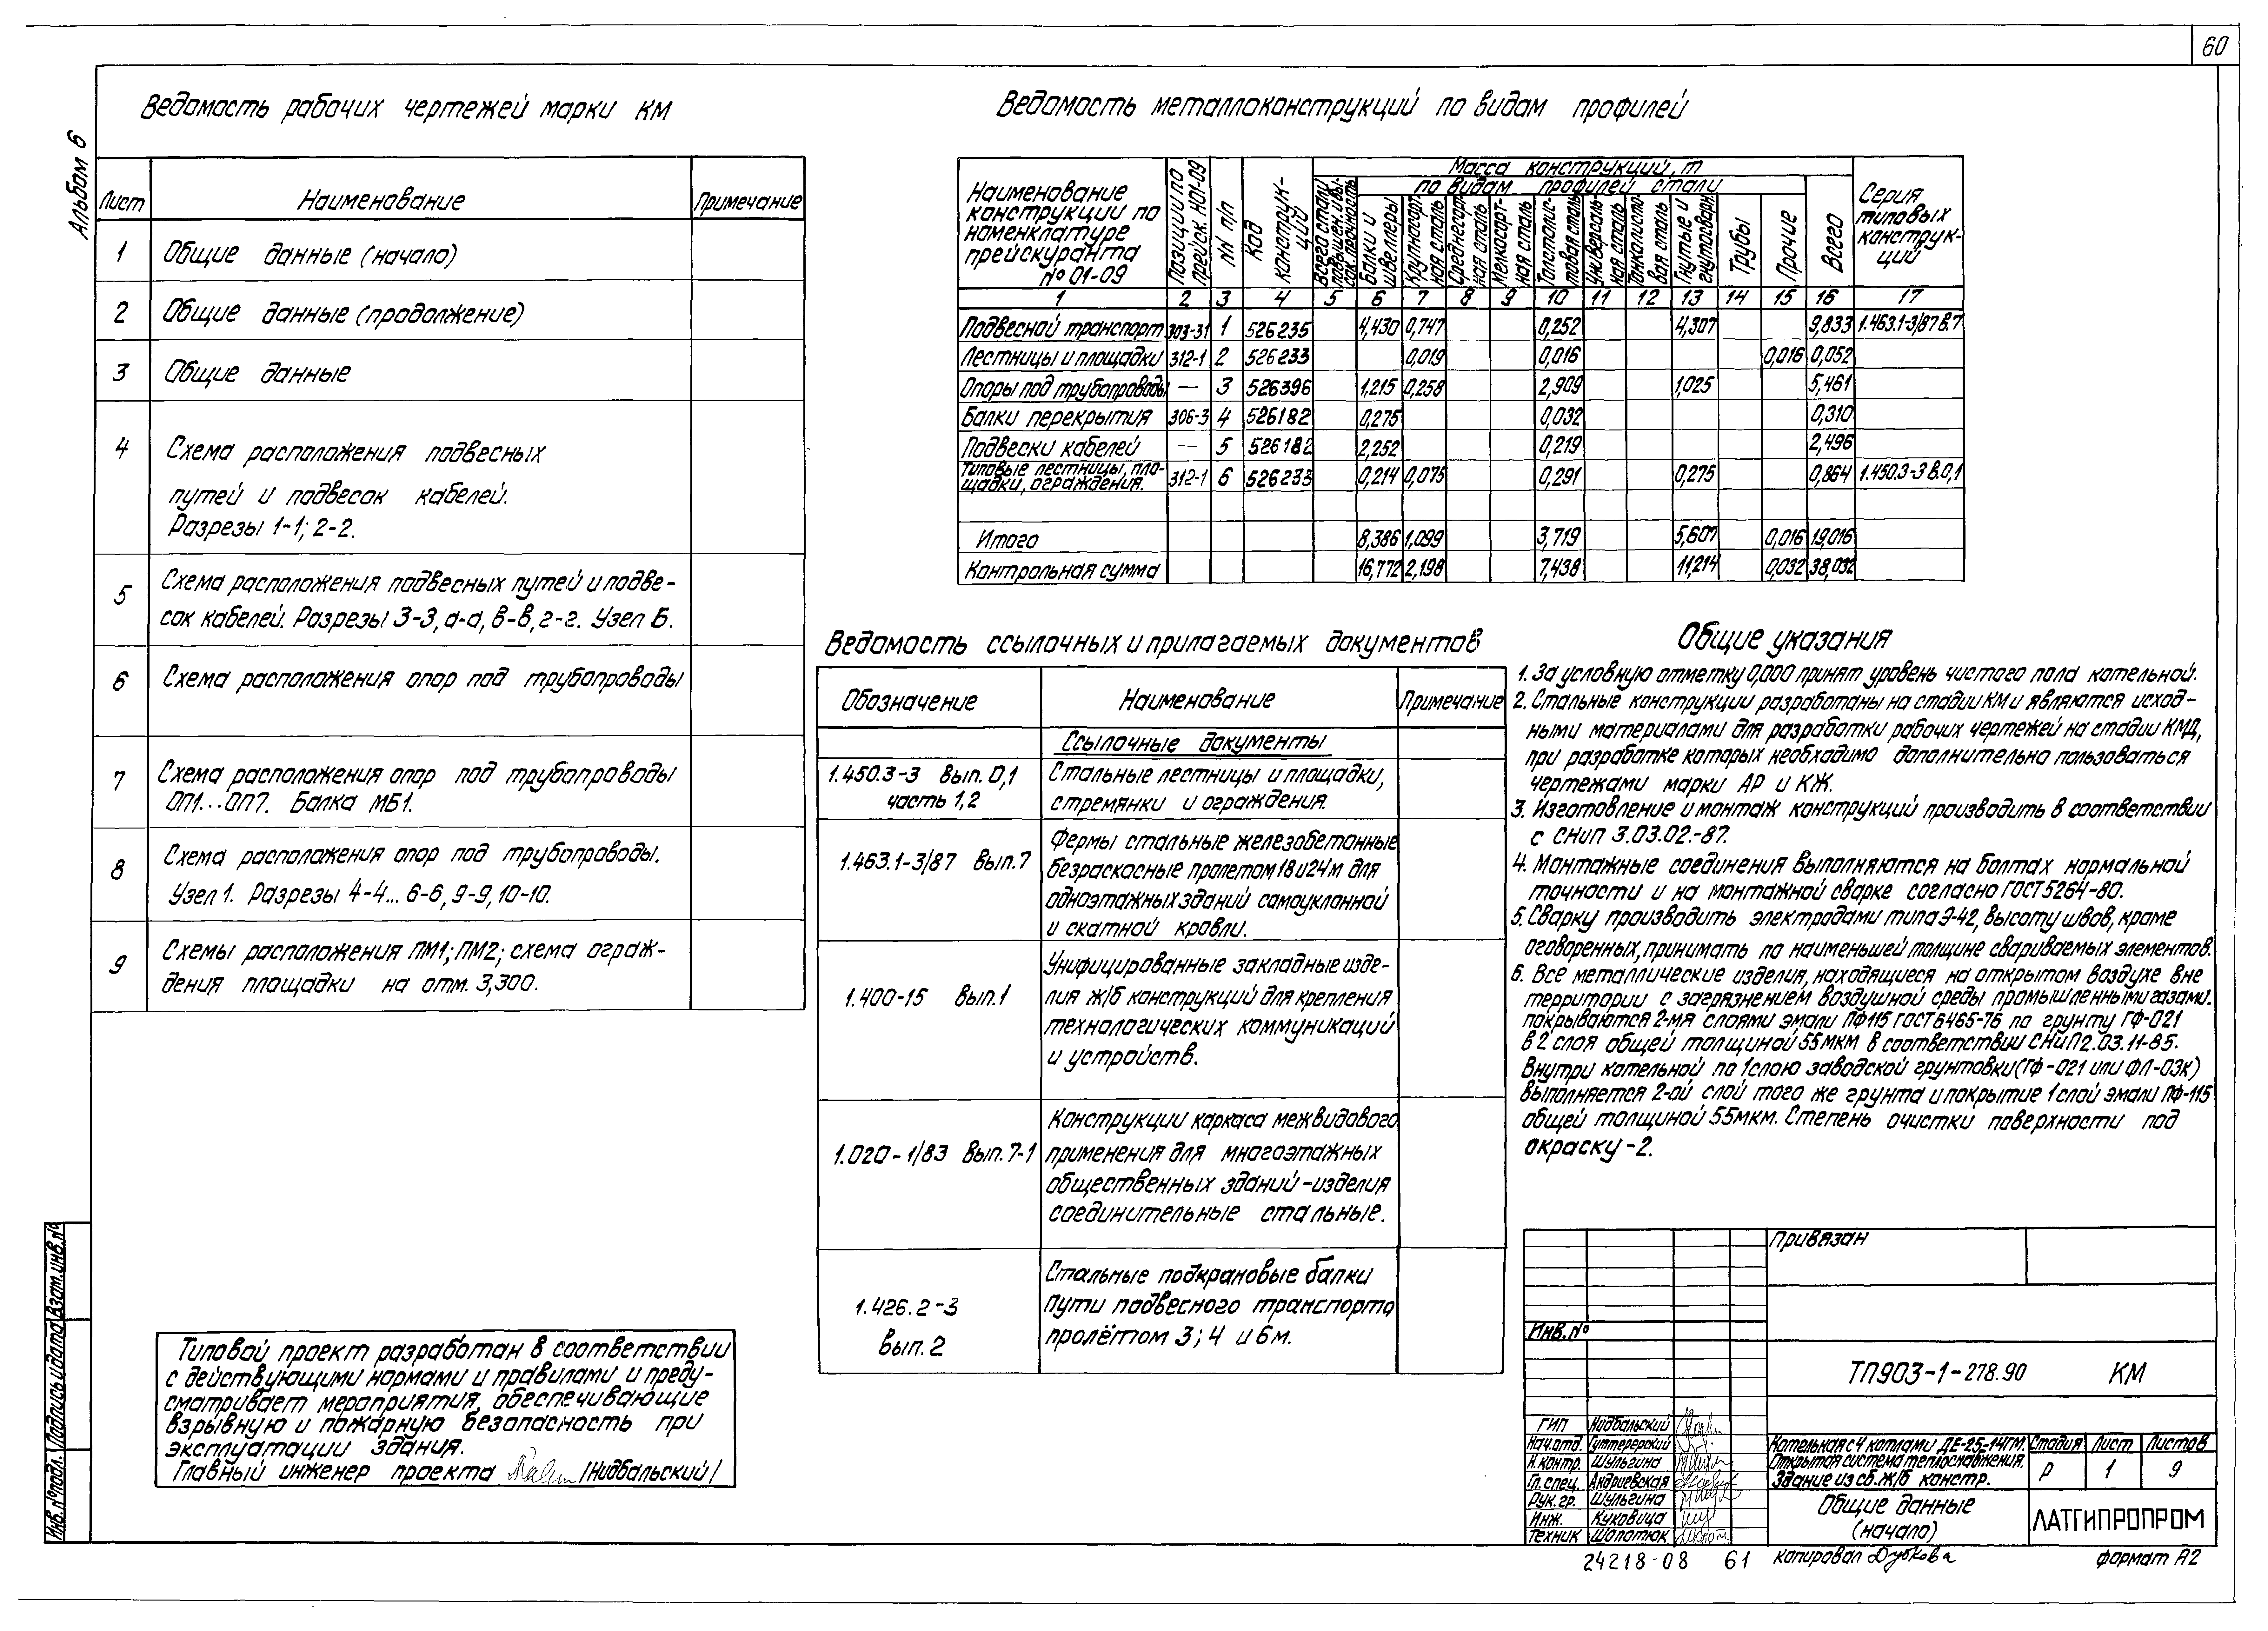 60
Альбом 6
Ведомость рабочих чертежей марки КМ
Лист Наименование Примечание
1 Общие данные (начало)
2 Общие данные (продолжение)
3 Общие данные
4 Схема расположения подвесных
путей и подвесок кабелей.
Разрезы 1-1; 2-2.
5 Схема расположения подвесных путей и подве-
сок кабелей. Разрезы 3-3, а-а, в-в, г-г. Узел Б.
6 Схема расположения опор под трубопроводы
7 Схема расположения опор под трубопроводы
ОП1...ОП7. Балка МБ1.
8 Схема расположения опор под трубопроводы.
Узел 1. Разрезы 4-4... 6-6, 9-9, 10-10.
9 Схемы расположения ПМ1; ПМ2; схема ограж-
дения площадки на отм. 3,300.
Типовой проект разработан в соответствии
с действующими нормами и правилами и преду-
сматривает мероприятия, обеспечивающие
взрывную и пожарную безопасность при
эксплуатации здания.
Главный инженер проекта /Нидбальский/
Ведомость металлоконструкций по видам профилей
Наименование
конструкции по
номенклатуре
прейскуранта
№ 01-09
Позиции по
прейск. №01-09
NN п/п
Код
конструк-
ций
Масса конструкций, т
по видам профилей стали
Балки и
швеллеры
Крупносорт-
ная сталь
Среднесорт-
ная сталь
Мелкосорт-
ная сталь
Толстолис-
товая сталь
Универсаль-
ная сталь
Тонколисто-
вая сталь
Гнутые и
гнутосварн.
Трубы
Прочие
Всего
Серия
типовых
конструк-
ций
1 2 3 4 5 6 7 8 9 10 11 12 13 14 15 16 17
Подвесной транспорт 303-31 1 526235 4,430 0,747 0,252 4,307 9,833 1.463.1-3/87 В.7
Лестницы и площадки 312-1 2 526233 0,019 0,016 0,016 0,052
Опоры под трубопроводы — 3 526396 1,215 0,258 2,909 1,025 5,461
Балки перекрытия 306-3 4 526182 0,275 0,032 0,310
Подвески кабелей — 5 526182 2,252 0,219 2,496
Типовые лестницы, пло-
щадки, ограждения. 312-1 6 526233 0,214 0,075 0,291 0,275 0,864 1.450.3-3 В.0,1
Итого 8,386 1,099 3,719 5,607 0,016 19,016
Контрольная сумма 16,772 2,198 7,438 11,214 0,032 38,032
Ведомость ссылочных и прилагаемых документов
Обозначение Наименование Примечание
Ссылочные документы
1.450.3-3 Вып. 0,1 Стальные лестницы и площадки,
часть 1,2 стремянки и ограждения.
Фермы стальные железобетонные
1.463.1-3/87 Вып.7 безраскосные пролетом 18 и 24м для
одноэтажных зданий самоуклонной
и скатной кровли.
Унифицированные закладные изде-
1.400-15 Вып.1 лия ж/б конструкций для крепления
технологических коммуникаций
и устройств.
Конструкции каркаса межвидового
1.020-1/83 Вып.7-1 применения для многоэтажных
общественных зданий-изделия
соединительные стальные.
Стальные подкрановые балки
1.426.2-3 Пути подвесного транспорта
Вып. 2 пролётом 3; 4 и 6м.
Общие указания
1. За условную отметку 0,000 принят уровень чистого пола котельной.
2. Стальные конструкции разработаны на стадии КМ и являются исход-
ными материалами для разработки рабочих чертежей на стадии КМД,
при разработке которых необходимо дополнительно пользоваться
чертежами марки АР и КЖ.
3. Изготовление и монтаж конструкций производить в соответствии
с СНиП 3.03.02.-87.
4. Монтажные соединения выполняются на болтах нормальной
точности и на монтажной сварке согласно ГОСТ 5264-80.
5. Сварку производить электродами типа Э-42, высоту швов, кроме
оговоренных, принимать по наименьшей толщине свариваемых элементов.
6. Все металлические изделия, находящиеся на открытом воздухе вне
территории с загрязнением воздушной среды промышленными газами.
покрываются 2-мя слоями эмали ПФ115 ГОСТ 6465-76 по грунту ГФ-021
в 2 слоя общей толщиной 55 мкм в соответствии СНиП 2.03.11-85.
Внутри котельной по 1 слою заводской грунтовки (ГФ-021 или ФЛ-03к)
выполняется 2-ой слой того же грунта и покрытие 1 слой эмали ПФ-115
общей толщиной 55мкм. Степень очистки поверхности под
окраску-2.
Привязан
Инв.№
ТП903-1-278.90 КМ
ГИП Нидбальский
Нач.отд. Гуттерерский
Н.контр. Шульгина
Гл.спец. Андриевская
Рук.гр. Шульгина
Инж. Куковица
Техник Шопотюк
Котельная с 4 котлами ДЕ-25-14ГМ.
Открытая система теплоснабжения.
Здание из сб.ж/б констр.
Стадия Лист Листов
Р 1 9
Общие данные
(начало)
ЛАТГИПРОПРОМ
24218-08 61 копировал Дубкова формат А2
Инв.№подл. Подпись и дата Взам.инв.№